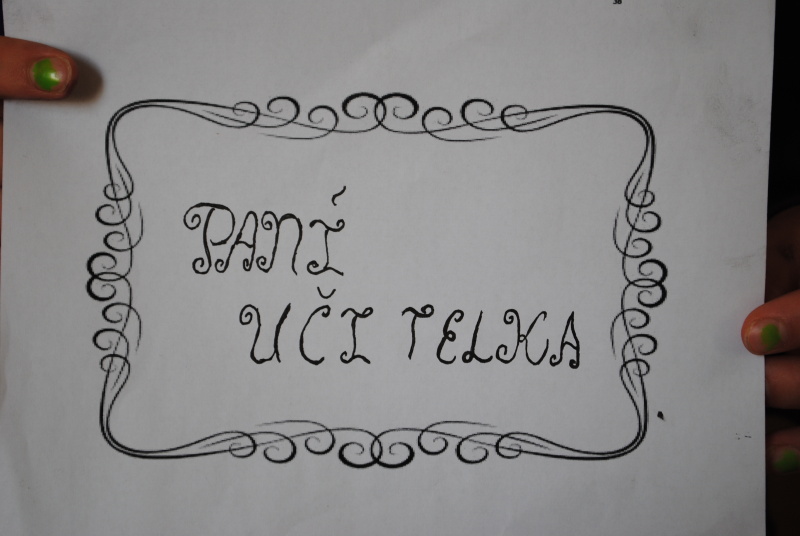 PANÍ
UČI TELKA